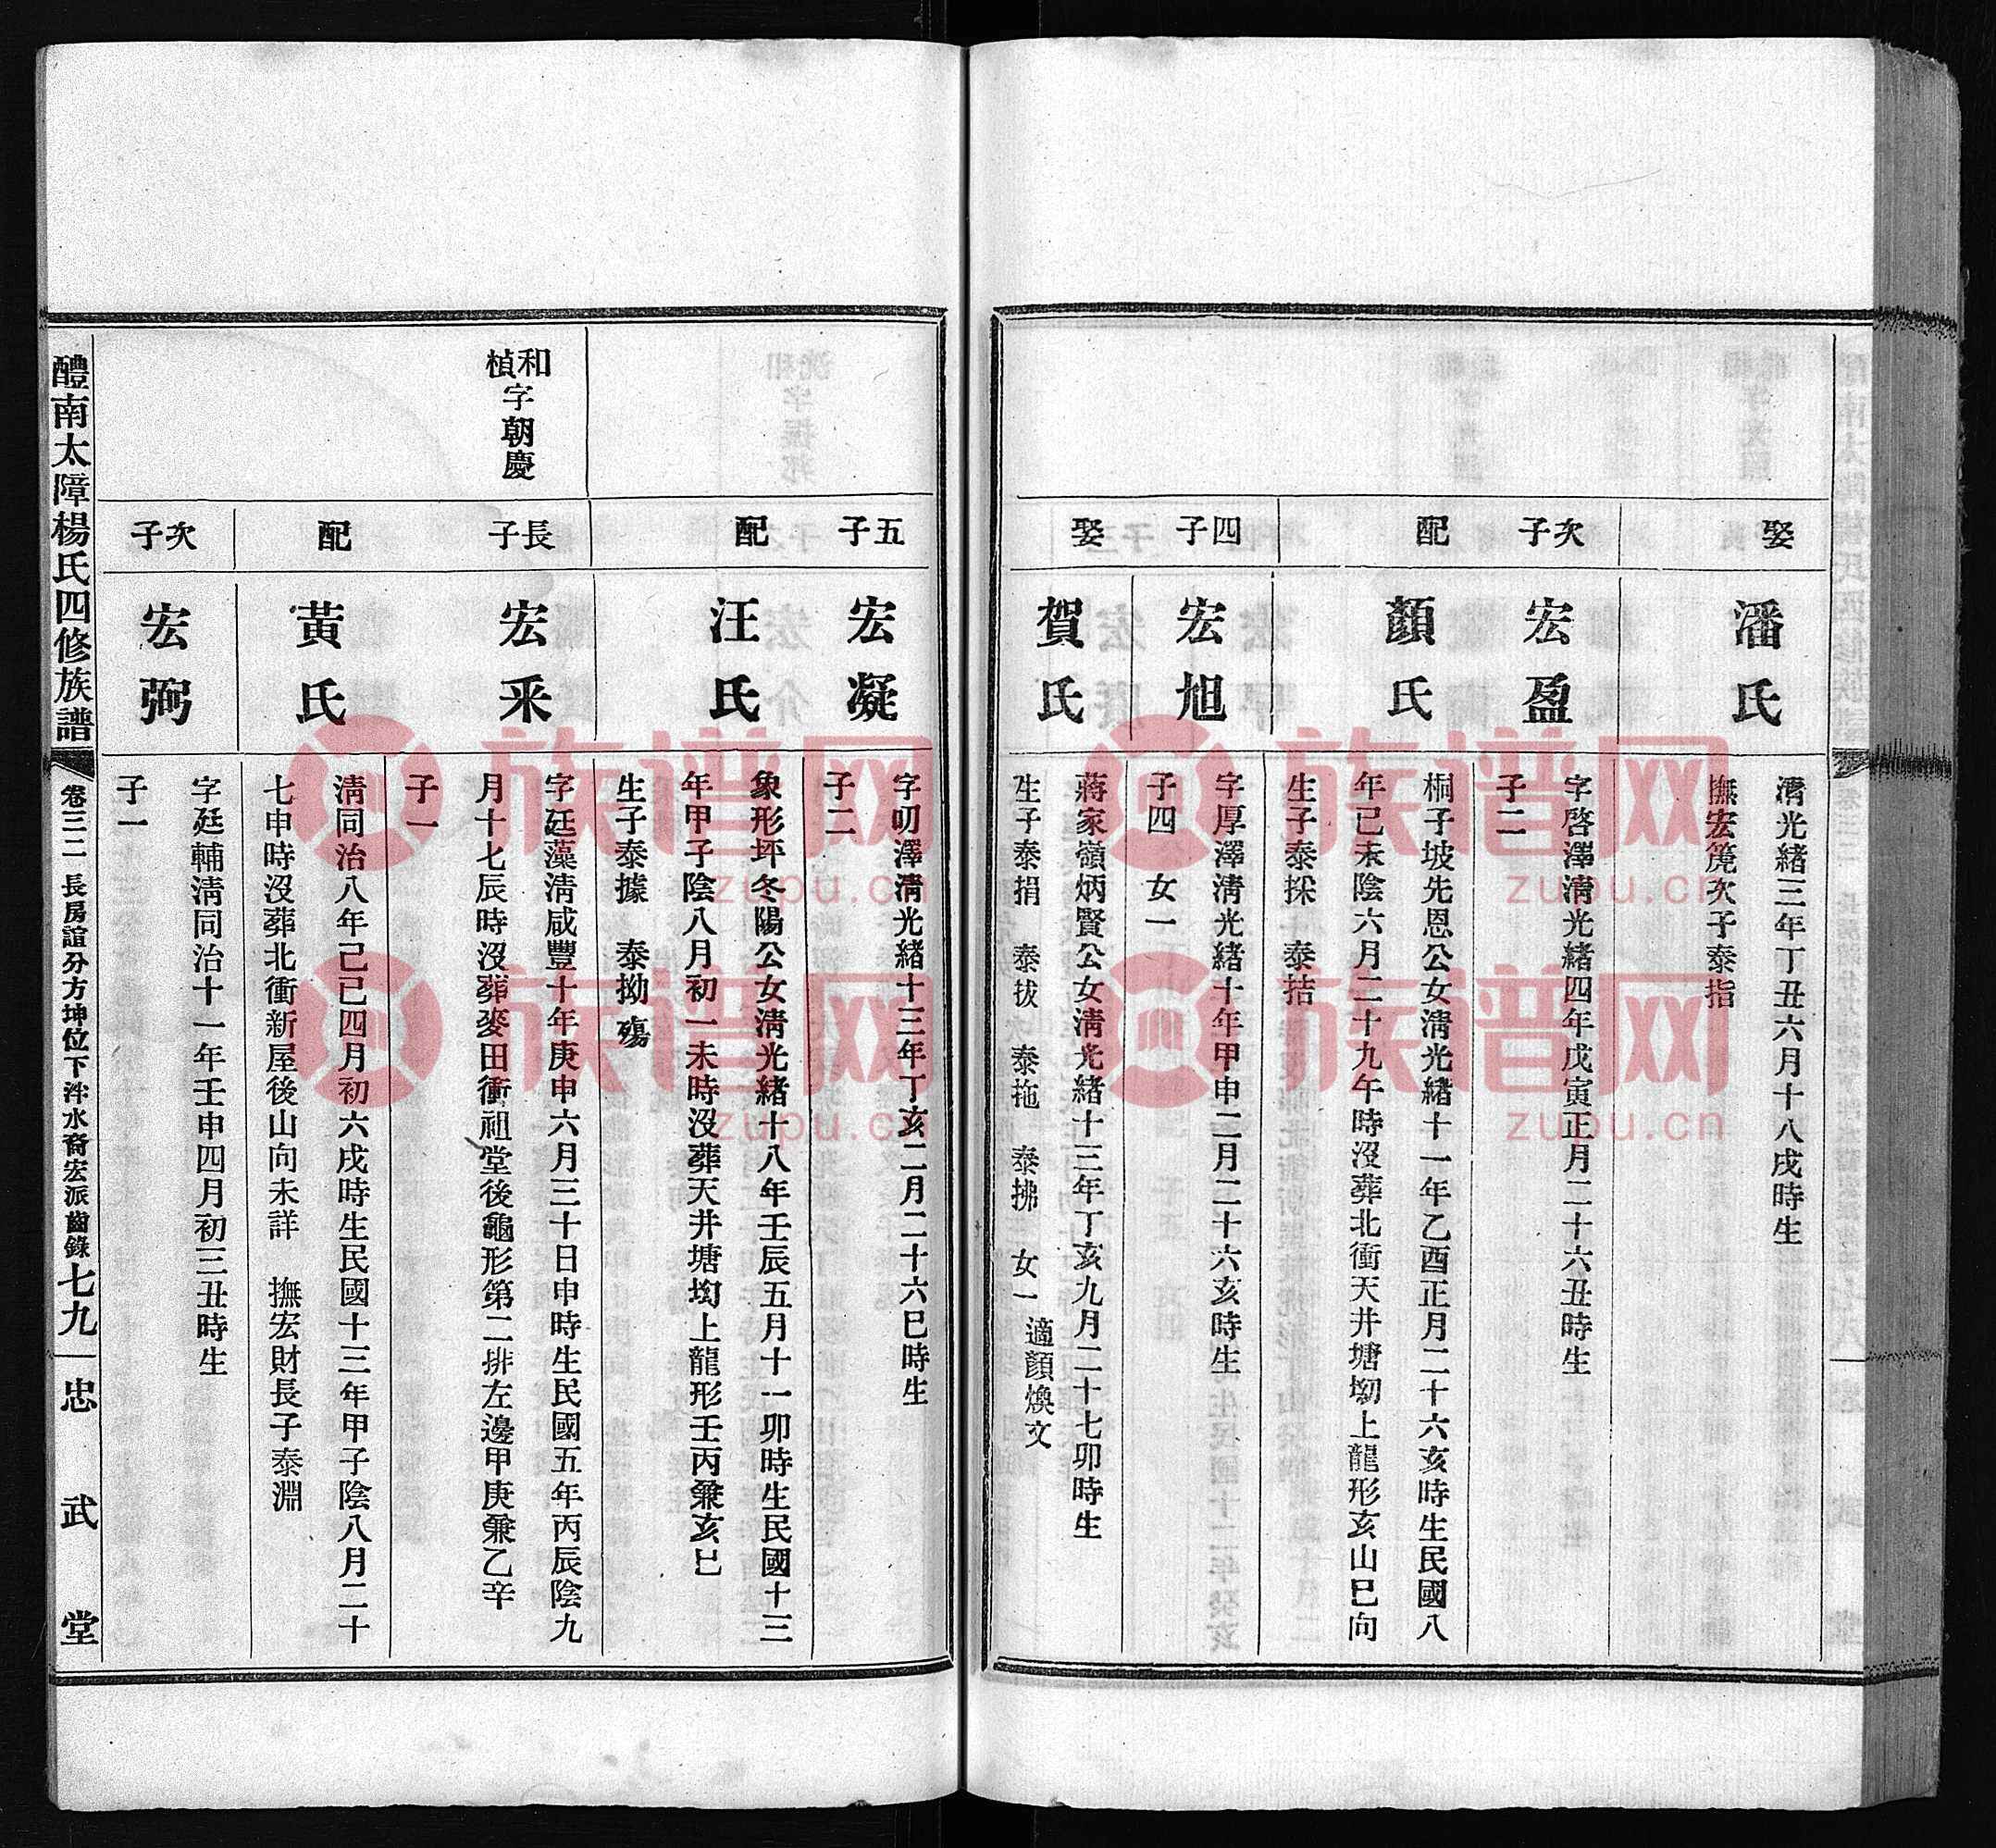 娶
潘氏
清光緒三年丁丑六月十八戌時生
撫宏篪次子泰指
次子
宏盈
字啓澤清光緒四年戊寅正月二十六丑時生
子二
配
顏氏
桐子坡先恩公女清光緒十一年乙酉正月二十六亥時生民國八
年已未陰六月二十九午時沒葬北衝天井塘坳上龍形亥山巳向
生子泰採 泰拮
四子
宏旭
字厚澤清光緒十年甲申二月二十六亥時生
子四 女一
娶
賀氏
蔣家嶺炳賢公女清光緒十三年丁亥九月二十七卯時生
生子泰捐 泰拔 泰拖 泰拂 女一適顏煥文
五子
宏凝
字叨澤清光緒十三年丁亥二月二十六巳時生
子二
配
汪氏
象形坪冬陽公女清光緒十八年壬辰五月十一卯時生民國十三
年甲子陰八月初一未時沒葬天井塘坳上龍形壬丙兼亥巳
生子泰據 泰拗殤
和楨字朝慶
長子
宏采
字廷藻清咸豐十年庚申六月三十日申時生民國五年丙辰陰九
月十七辰時沒葬麥田衝祖堂後龜形第二排左邊甲庚兼乙辛
子一
配
黃氏
清同治八年己巳四月初六戌時生民國十三年甲子陰八月二十
七申時沒葬北衝新屋後山向未詳 撫宏財長子泰淵
次子
宏弼
字廷輔清同治十一年壬申四月初三丑時生
子一
醴南太障楊氏四修族譜 卷三二 長房誼分方坤位下泮水裔宏派齒錄 七九 忠武堂
族谱网
zupu.cn
族谱网
zupu.cn
族谱网
zupu.cn
族谱网
zupu.cn